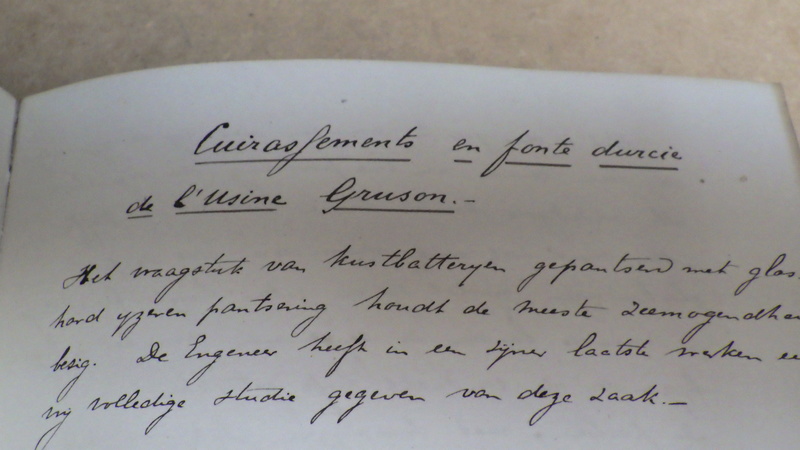 Cuirassements en fonte durcie
de l'Usine Gruson.-
Het vraagstuk van kustbatteryen gepantserd met glas-
hard yzeren pantsering houdt de meeste zeemogendhe
bezig. De Engeneer heeft in een zijner laatste werken ee
vrij volledige studie gegeven van deze zaak.-